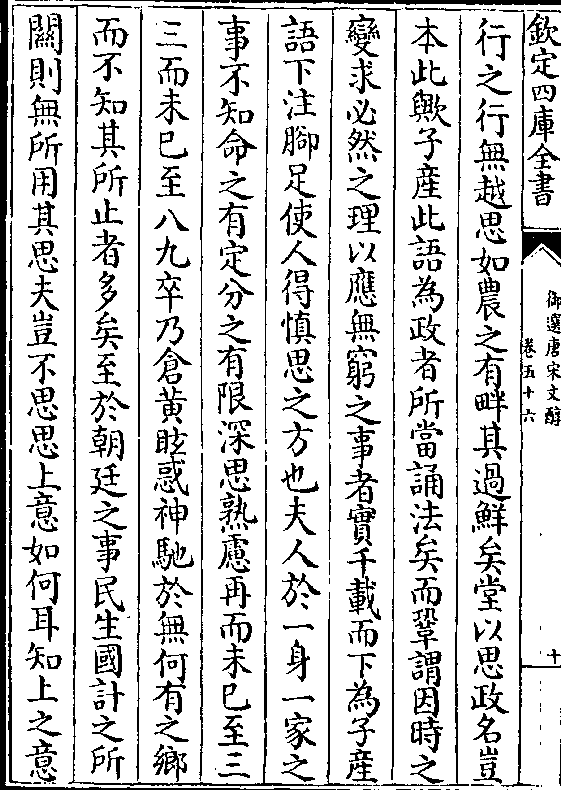 欽定四庫全書
御選唐宋文醇
卷五十六
十
行之行無越思如農之有畔其過鮮矣堂以思政名豈
本此歟子產此語為政者所當誦法矣而鞏謂因時之
變求必然之理以應無窮之事者實千載而下為子產
語下注腳足使人得慎思之方也夫人於一身一家之
事不知命之有定分之有限深思熟慮再而未已至三
三而未已至八九卒乃倉黃眩惑神馳於無何有之鄉
而不知其所止者多矣至於朝廷之事民生國計之所
關則無所用其思夫豈不思思上意如何耳知上之意